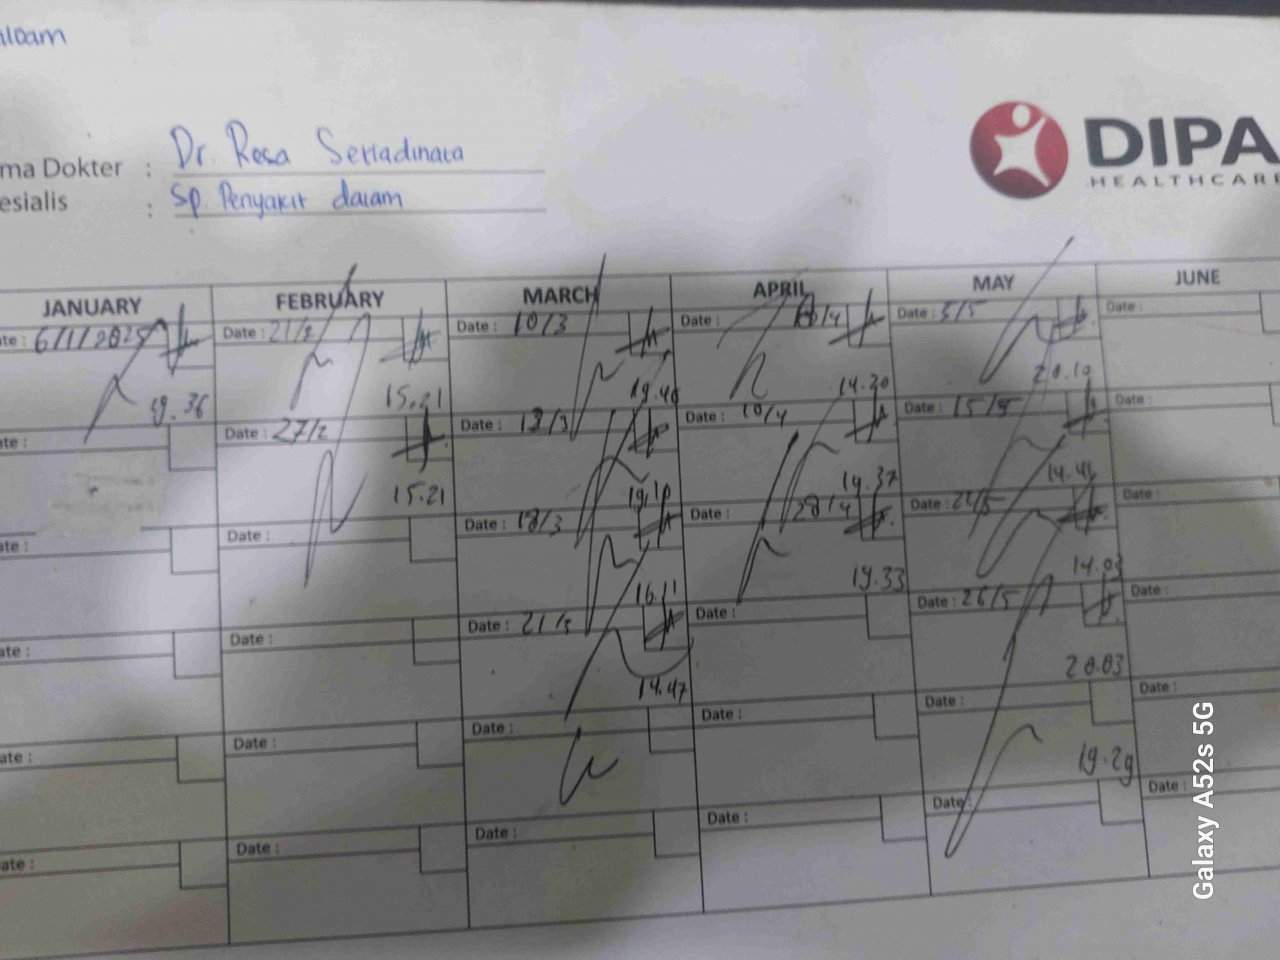 ma Dokter : Dr. Rosa Setiadinata
esialis : Sp. Penyakit dalam
DIPA
HEALTHCARE
JANUARY FEBRUARY MARCH APRIL MAY JUNE
ate : 6/1/2025 Date : 21/2 Date : 10/3 Date : Date : 5/5 Date :
19.36 15.21 19.40 14.20 20.10
ate : Date : 27/2 Date : 13/3 Date : 10/4 Date : 15/5 Date :
15.21 19.10 19.37
ate : Date : Date : 18/3 Date : 28/4 Date : Date :
16.11 19.33 14.03
ate : Date : Date : 21/3 Date : Date : 26/5 Date :
14.47 20.03
ate : Date : Date : Date : Date : Date :
19.29
ate : Date : Date : Date : Date : Date :
Galaxy A52s 5G